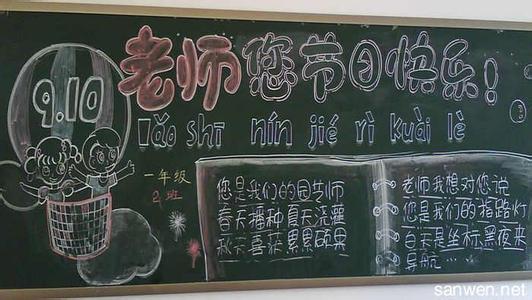 9.10
老师您节日快乐!
lǎo shī nín jié rì kuài lè
一年级
2班
您是我们的园艺师
春天播种夏天浇灌
秋天喜获累累硕果
老师我想对您说
您是我们的指路灯
白天是坐标黑夜来
导航……
sanwen.net